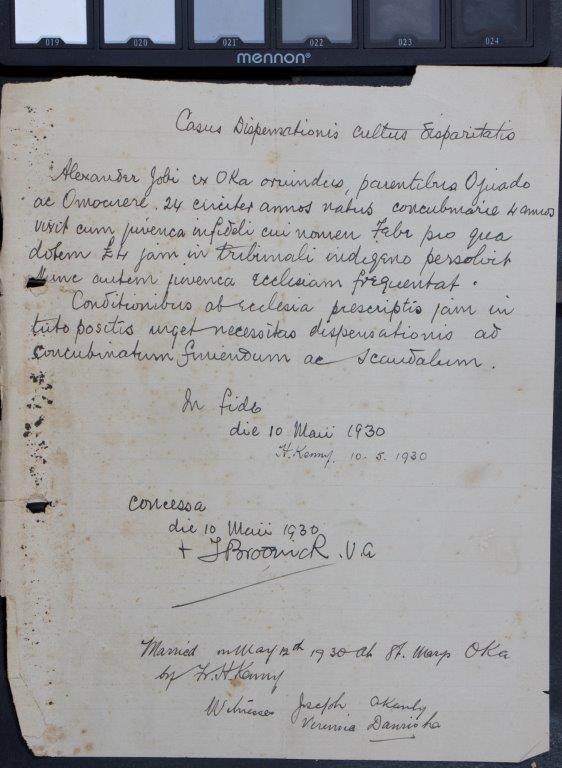 019 020 021 022 023 024
mennon®
Casus Dispensationis cultus disparitatis
Alexander Jobi ex Oka oriundus, parentibus Ojuado
ac Omocurere. 24 circiter annos natus concubinarie 4 annos
vixit cum juvenca infideli cui nomen Febe pro qua
dotem £4 jam in tribunali indigeno persolvit
Nunc autem juvenca Ecclesiam frequentat.
Conditionibus ab Ecclesia prescriptis jam in
tuto positis urget necessitas dispensationis ad
Concubinatum finiendum ac Scandalum.
In fide
die 10 Maii 1930
H. Kenny. 10. 5. 1930
concessa
die 10 Maii 1930
+ J Broderick. V.A
Married on May 12th 1930 at St. Marys Oka
by Fr. H Kenny
Witnesses Joseph